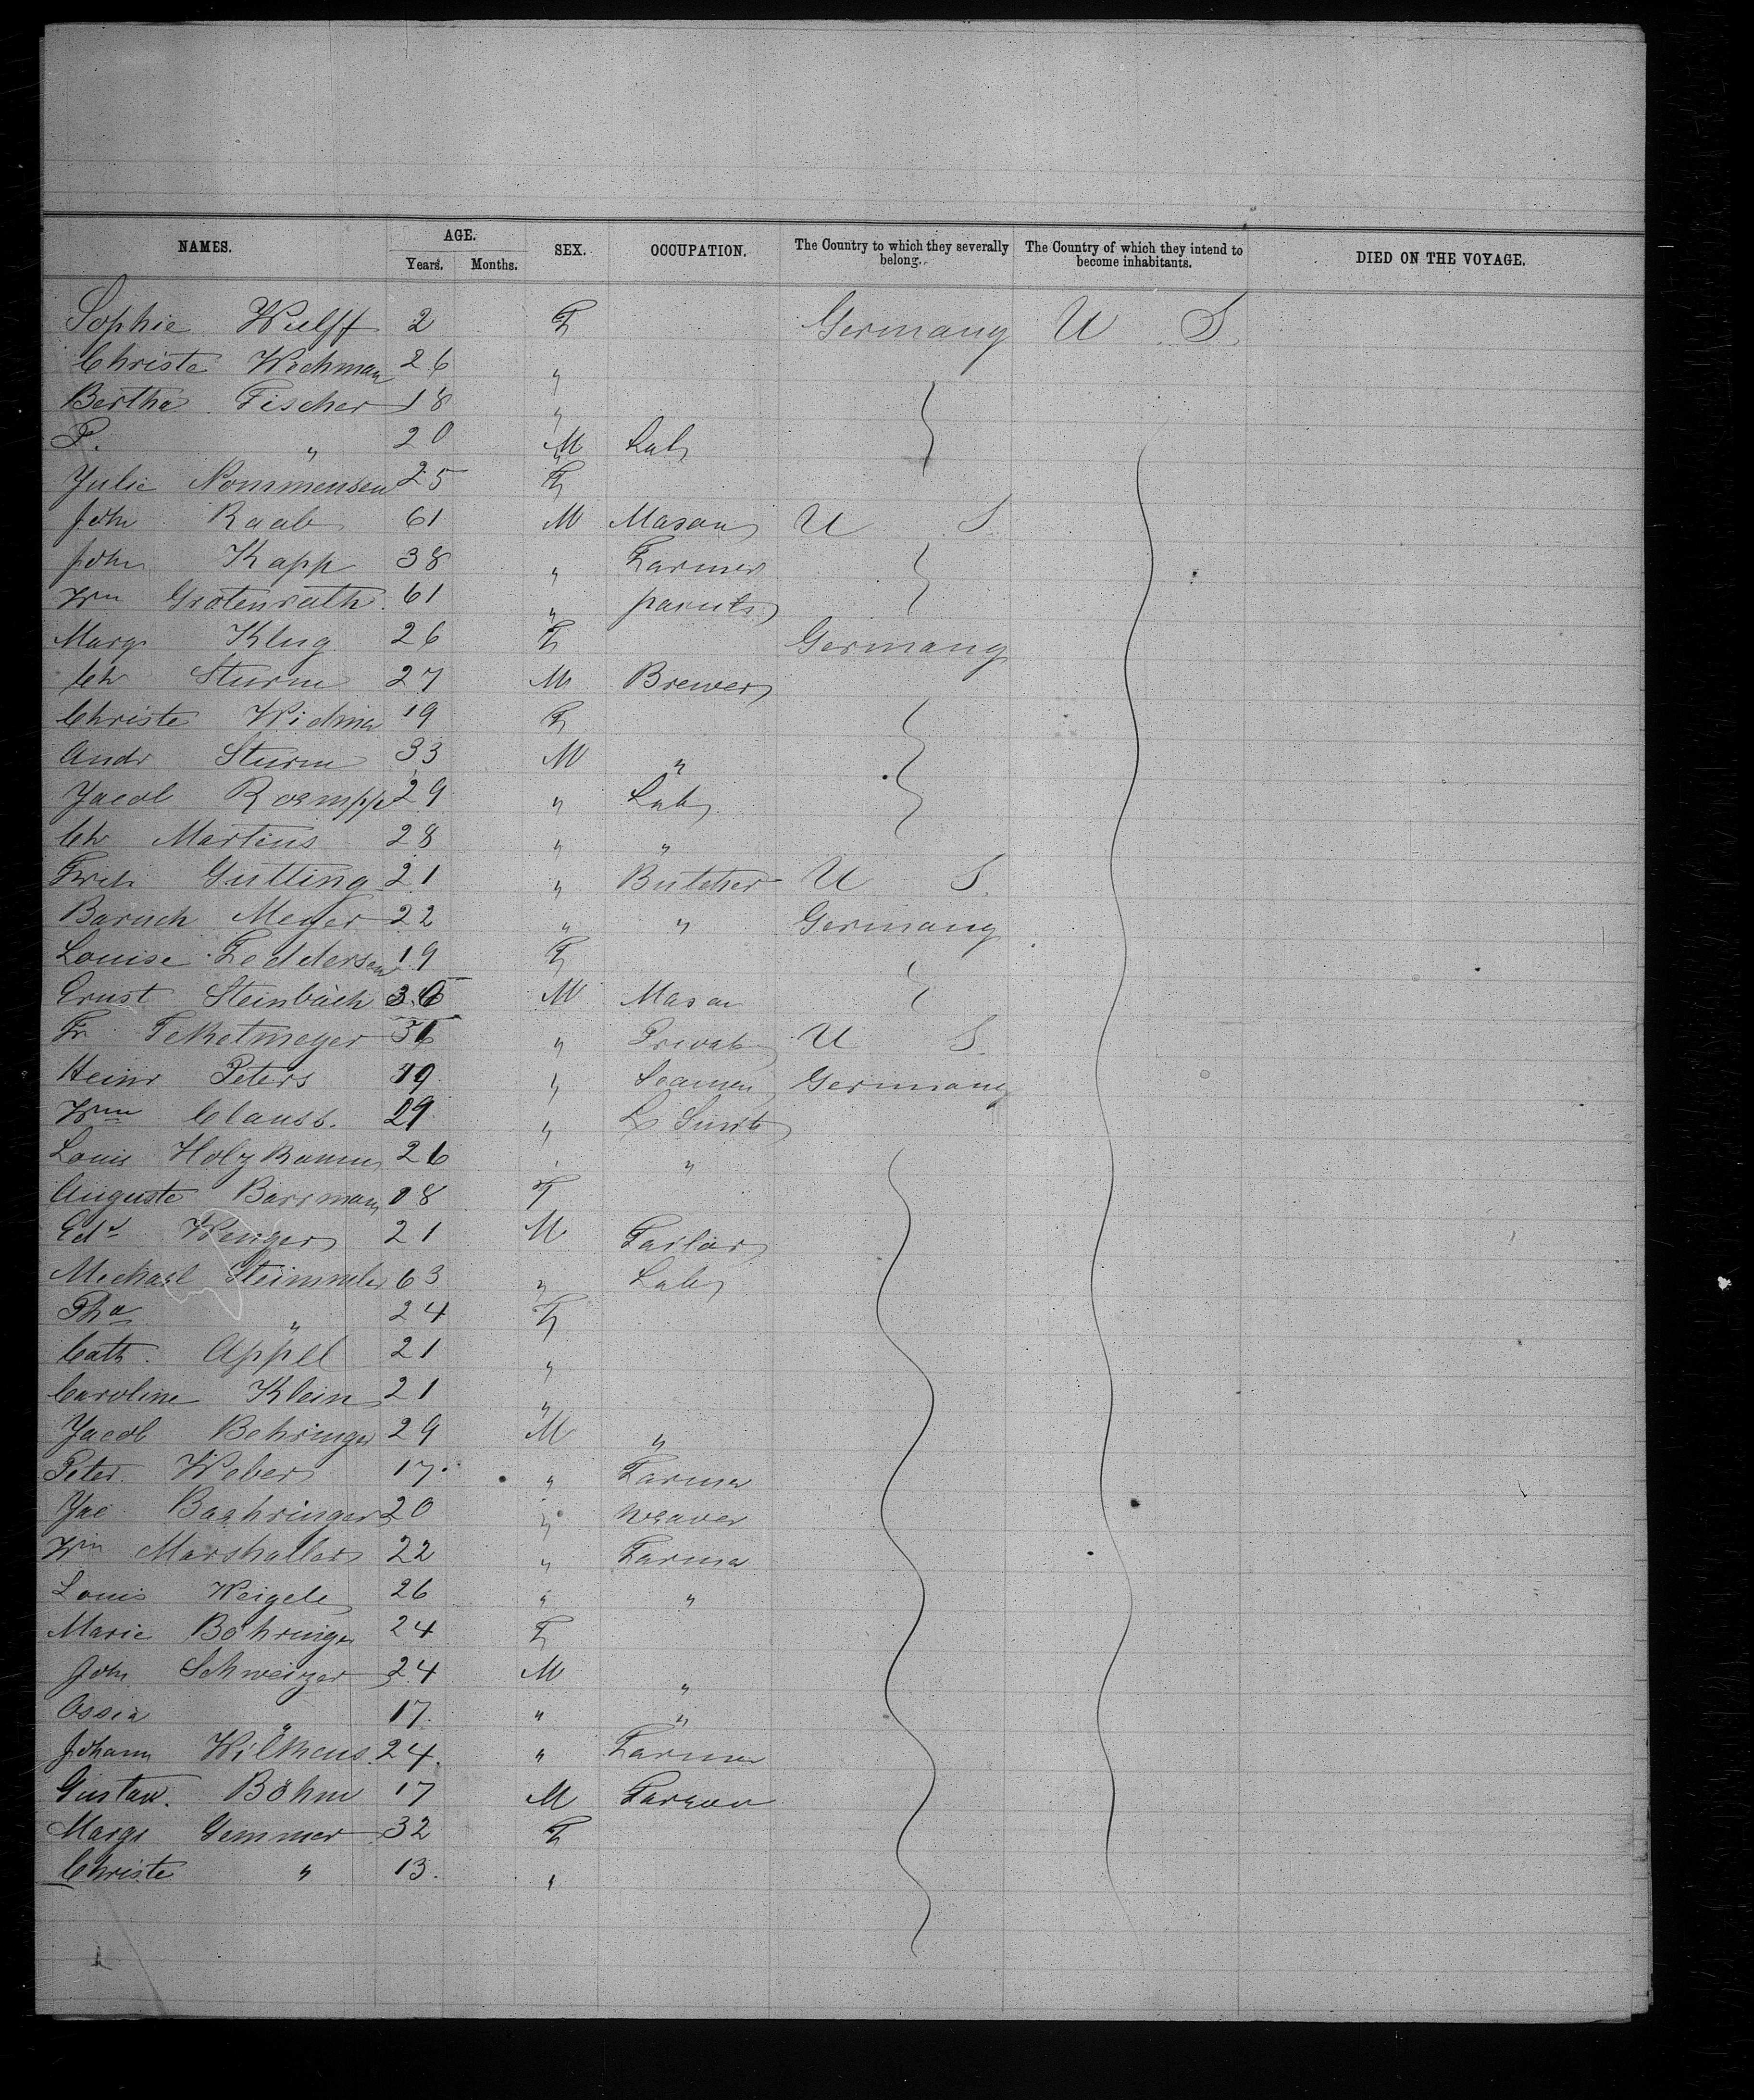 NAMES. AGE. SEX. OCCUPATION. The Country to which they severally belong. The Country of which they intend to become inhabitants. DIED ON THE VOYAGE.
Years. Months.
Sophie Wulff 2 F Germany U S
Christe Wichman 26 "
Bertha Fischer 18 "
P. " 20 M Lab
Julie Nommensen 25 F
John Raab 61 M Mason U S
John Kapp 38 " Farmer
Wm Grotenrath 61 "
Marg Klug 26 F Germany
Ch Sturm 27 M Brewer
Christe Widmer 19 F
Andr Sturm 33 M "
Jacob Roempp 29 " Lab
Ch Martens 28 " "
Frch Gutting 21 " Butcher U S
Baruch Meyer 22 " " Germany
Louise Feddersen 19 F
Ernst Steinbach M Mason
Fr Teketmeyer " Privat U S
Heinr Peters 19 " Seaman Germany
Wm Clauss. 29 "
Louis Holzkamm 26 " "
Auguste Barrmann 18 F
Edd Wenger 21 M Tailor
Michael Steimmle 63 " Lab
" 24 F
Cath. Appel 21 "
Caroline Klein 21 "
Jacob Behringer 29 M "
Peter Weber 17 " Farmer
Jac Baehringer 20 " weaver
Wm Marshaller 22 " Farmer
Louis Weigele 26 " "
Marie Böhringer 24 F
John Schweizer 24 M "
" 17 " "
Johann Wilkens 24. " Farmer
Gustav. Böhm 17 M
Margr Gemmer 32 F
Christe " 13. "